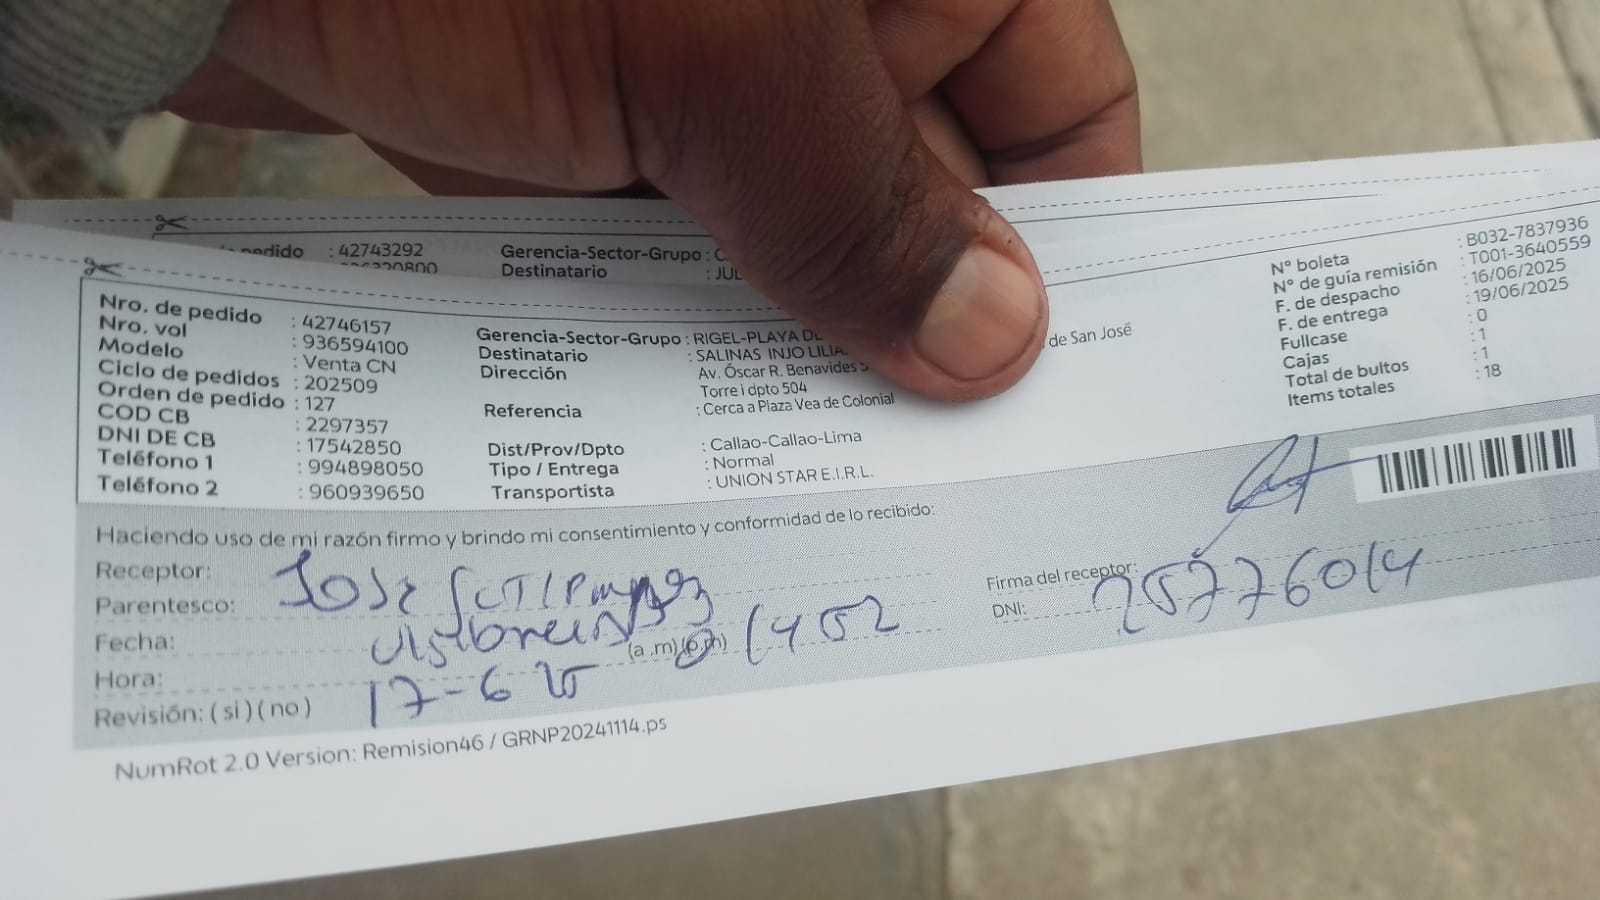 pedido : 42743292 Gerencia-Sector-Grupo :
Destinatario : JUL
Nro. de pedido : 42746157
Nro. vol : 936594100
Modelo : Venta CN
Ciclo de pedidos : 202509
Orden de pedido : 127
COD CB : 2297357
DNI DE CB : 17542850
Teléfono 1 : 994898050
Teléfono 2 : 960939650
Gerencia-Sector-Grupo : RIGEL-PLAYA DE
Destinatario : SALINAS INJO LILIA
Dirección : Av. Óscar R. Benavides de San José
Torre i dpto 504
Referencia : Cerca a Plaza Vea de Colonial
Dist/Prov/Dpto : Callao-Callao-Lima
Tipo / Entrega : Normal
Transportista : UNION STAR E.I.R.L.
N° boleta : B032-7837936
N° de guía remisión : T001-3640559
F. de despacho : 16/06/2025
F. de entrega : 19/06/2025
Fullcase : 0
Cajas : 1
Total de bultos : 1
Items totales : 18
Haciendo uso de mi razón firmo y brindo mi consentimiento y conformidad de lo recibido:
Receptor: Jose
Parentesco:
Fecha: 17-6 25
Hora: (a.m)(p.m) 1452
Revisión: (si)(no)
Firma del receptor:
DNI: 25776014
NumRot 2.0 Version: Remision46 / GRNP20241114.ps